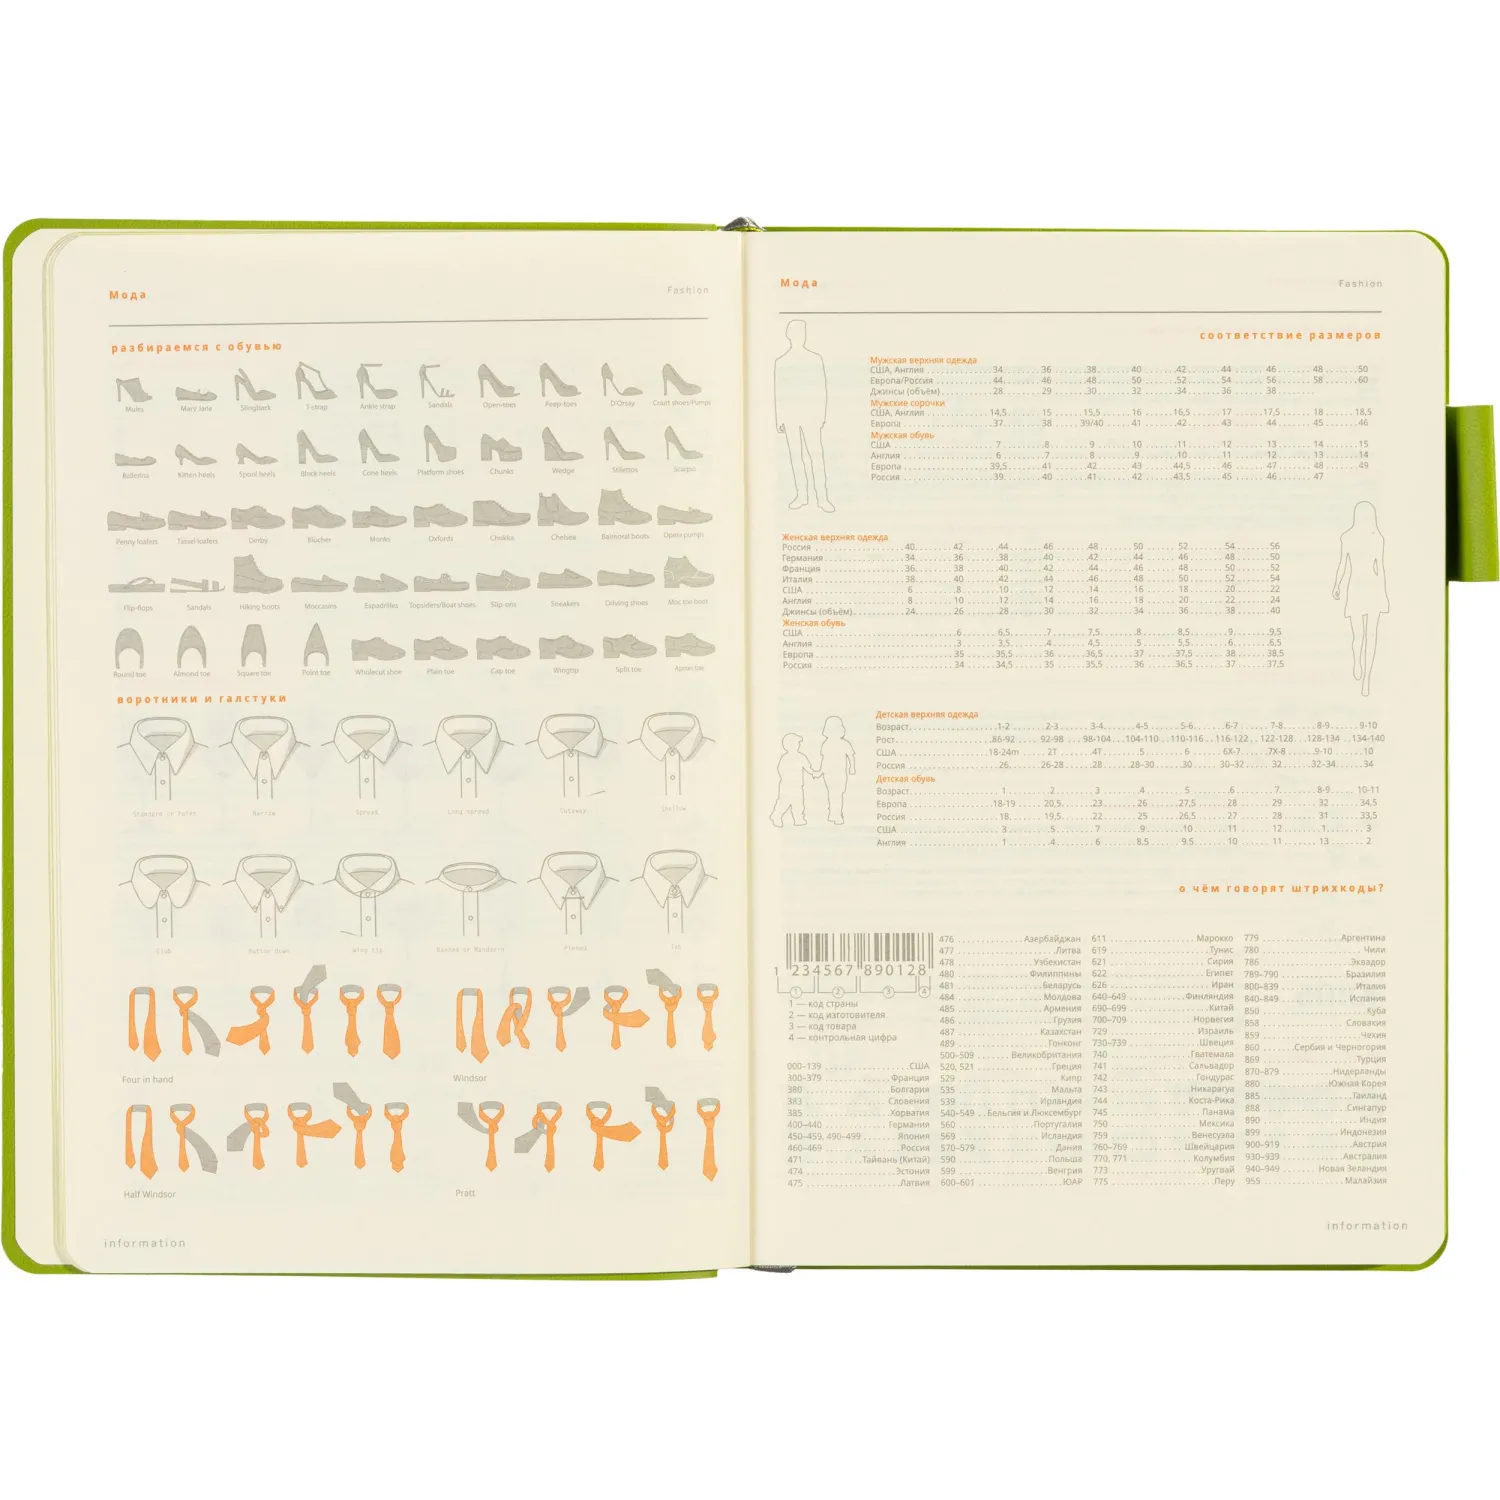 Мода
Fashion
разбираемся с обувью
Mules Mary Jane Slingback T-strap Ankle strap Sandals Open-toes Peep-toes D'Orsay Court shoes/Pumps
Ballerina Kitten heels Spool heels Block heels Cone heels Platform shoes Chunks Wedge Stilettos Scarpin
Penny loafers Tassel loafers Derby Blucher Monks Oxfords Chukka Chelsea Balmoral boots Opera pumps
Flip-flops Sandals Hiking boots Moccasins Espadrilles Topsiders/Boat shoes Slip-ons Sneakers Driving shoes Moc toe boot
Round toe Almond toe Square toe Point toe Wholecut shoe Plain toe Cap toe Wingtip Split toe Apron toe
воротники и галстуки
Narrow Spread Long spread Cutaway
Club Button down Wing tip Banded or Mandarin Pinned Tab
Four in hand
Windsor
Half Windsor
Pratt
information
Мода
Fashion
соответствие размеров
Мужская верхняя одежда
США, Англия 34 36 38 40 42 44 46 48 50
Европа/Россия 44 46 48 50 52 54 56 58 60
Джинсы (объём) 28 29 30 32 34 36 38
Мужские сорочки
США, Англия 14,5 15 15,5 16 16,5 17 17,5 18 18,5
Европа 37 38 39/40 41 42 43 44 45 46
Мужская обувь
США 7 8 9 10 11 12 13 14 15
Англия 6 7 8 9 10 11 12 13 14
Европа 39,5 41 42 43 44,5 46 47 48 49
Россия 39 40 41 42 43,5 45 46 47
Женская верхняя одежда
Россия 40 42 44 46 48 50 52 54 56
Германия 34 36 38 40 42 44 46 48 50
Франция 36 38 40 42 44 46 48 50 52
Италия 38 40 42 44 46 48 50 52 54
США 6 8 10 12 14 16 18 20 22
Англия 8 10 12 14 16 18 20 22 24
Джинсы (объём) 24 26 28 30 32 34 36 38 40
Женская обувь
США 6 6,5 7 7,5 8 8,5 9 9,5
Англия 3 3,5 4 4,5 5 5,5 6 6,5
Европа 35 35,5 36 36,5 37 37,5 38 38,5
Россия 34 34,5 35 35,5 36 36,5 37 37,5
Детская верхняя одежда
Возраст 1-2 2-3 3-4 4-5 5-6 6-7 7-8 8-9 9-10
Рост 86-92 92-98 98-104 104-110 110-116 116-122 122-128 128-134 134-140
США 18-24m 2T 4T 5 6 6X-7 7X-8 9-10 10
Россия 26 26-28 28 28-30 30 30-32 32 32-34 34
Детская обувь
Возраст 1 2 3 4 5 6 7 8-9 10-11
Европа 18-19 20,5 23 26 27,5 28 29 32 34,5
Россия 18 19,5 22 25 26,5 27 28 31 33,5
США 3 5 7 9 10 11 12 1 3
Англия 1 4 6 8.5 9.5 10 11 13 2
о чём говорят штрихкоды?
1 234567 890128
1 2 3 4
1 — код страны
2 — код изготовителя
3 — код товара
4 — контрольная цифра
000–139 США
300–379 Франция
380 Болгария
383 Словения
385 Хорватия
400–440 Германия
450–459, 490–499 Япония
460–469 Россия
471 Тайвань (Китай)
474 Эстония
475 Латвия
476 Азербайджан
477 Литва
478 Узбекистан
480 Филиппины
481 Беларусь
484 Молдова
485 Армения
486 Грузия
487 Казахстан
489 Гонконг
500–509 Великобритания
520, 521 Греция
529 Кипр
535 Мальта
539 Ирландия
540–549 Бельгия и Люксембург
560 Португалия
569 Исландия
570–579 Дания
590 Польша
599 Венгрия
600–601 ЮАР
611 Марокко
619 Тунис
621 Сирия
622 Египет
626 Иран
640–649 Финляндия
690–699 Китай
700–709 Норвегия
729 Израиль
730–739 Швеция
740 Гватемала
741 Сальвадор
742 Гондурас
743 Никарагуа
744 Коста-Рика
745 Панама
750 Мексика
759 Венесуэла
760–769 Швейцария
770, 771 Колумбия
773 Уругвай
775 Перу
779 Аргентина
780 Чили
786 Эквадор
789–790 Бразилия
800–839 Италия
840–849 Испания
850 Куба
858 Словакия
859 Чехия
860 Сербия и Черногория
869 Турция
870–879 Нидерланды
880 Южная Корея
885 Таиланд
888 Сингапур
890 Индия
899 Индонезия
900–919 Австрия
930–939 Австралия
940–949 Новая Зеландия
955 Малайзия
information